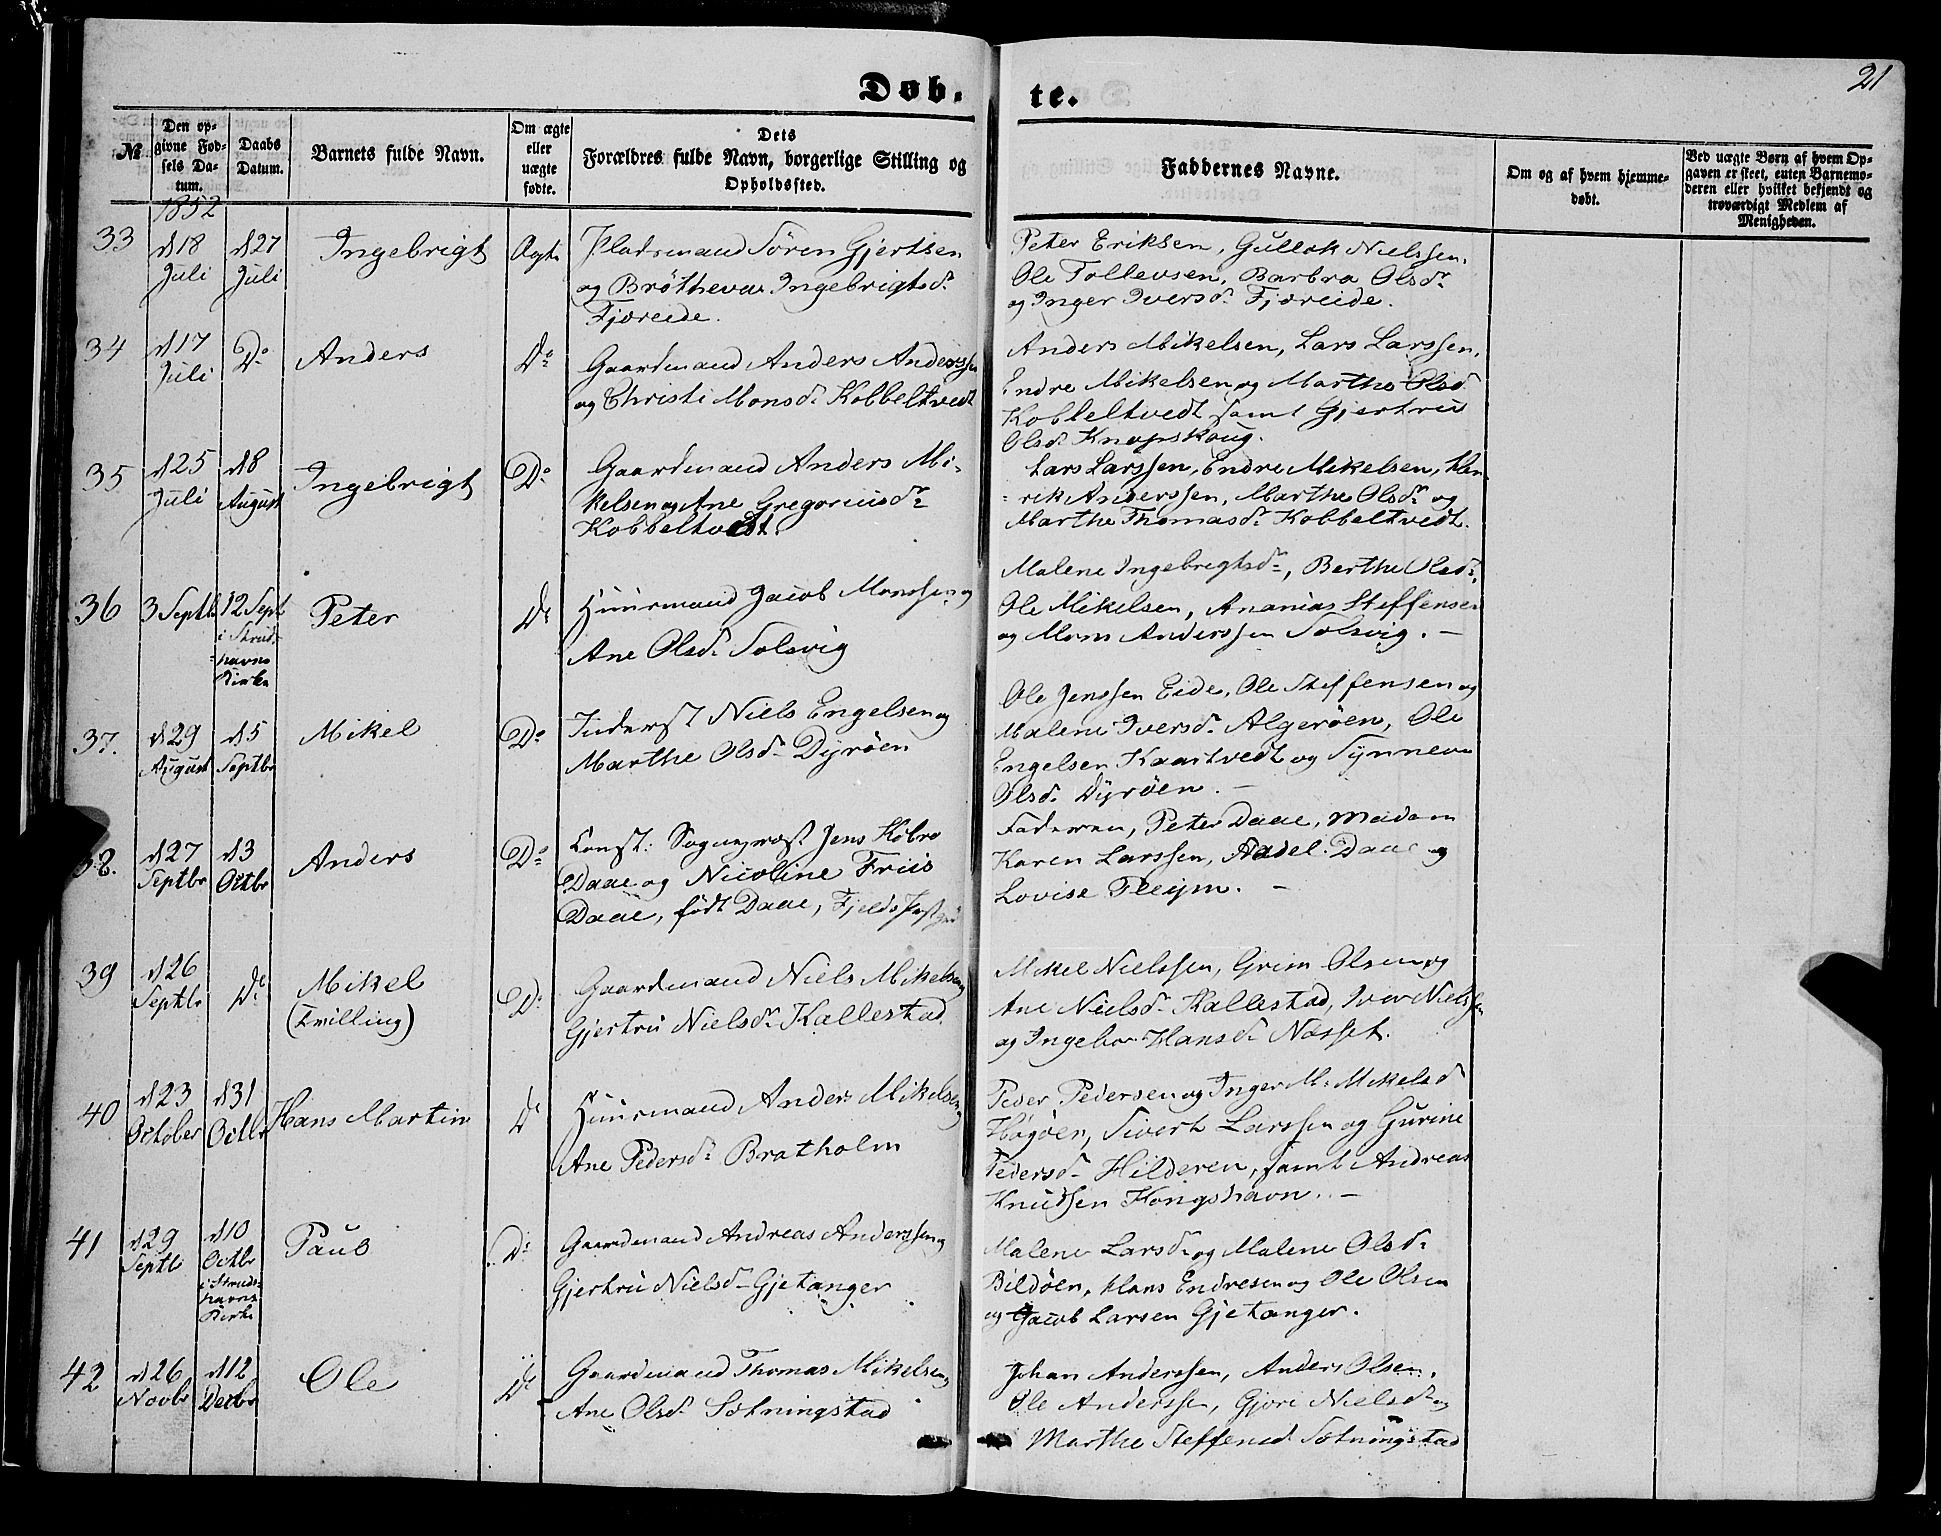 21
Døb- te.
№
Den opgivne Fødsels Datum.
Daabs Datum.
Barnets fulde Navn.
Om ægte eller uægte fødte.
Dets Forældres fulde Navn, borgerlige Stilling og Opholdssted.
Faddernes Navne.
Om og af hvem hjemmedøbt.
Ved uægte Børn af hvem Opgaven er skeet, enten Barnemoderen eller hvilket bekjendt og troværdigt Medlem af Menigheden.
1852
33
d 18 Juli
d 27 Juli
Ingebrigt
Ægte
Pladsmand Søren Gjertsen
og Brøtheva Ingebrigtsd.
Fjæreide.
Peter Eriksen, Gullak Nielssen,
Ole Tollevsen, Barbra Olsdr
og Inger Iversd. Fjæreide.
34
d 17 Juli
Do
Anders
Do
Gaardmand Anders Anderssen
og Christi Monsd. Kobbeltvedt
Anders Mikelsen, Lars Larssen,
Endre Mikelsen og Marthe Olsd
Kobbeltvedt samt Gjertrud
Olsd. Knapskoug.
35
d 25 Juli
d 8 August
Ingebrigt
Do
Gaardmand Anders Mi-
kelsen og Ane Gregoriusdr
Kobbeltvedt
Lars Larssen, Endre Mikelsen, Hen
=rik Anderssen, Marthe Olsdr og
Marthe Thomasd. Kobbeltvedt.
36
3 Septb
12 Sept i Skuds=
havns
Kirke
Peter
Do
Huusmand Jacob Monssen og
Ane Olsd. Solsvig
Malene Ingebrigtsdr, Berthe Olsdr,
Ole Mikelsen, Ananias Steffensen
og Mons Anderssen Solsvig. —
37.
d 29 August
d 5 Septbr
Mikel
Do
Inderst Niels Engelsen og
Marthe Olsd. Dyrøen
Ole Jenssen Eide, Ole Steffensen og
Malene Iversd. Algerøen, Ole
Engelsen Kaartvedt og Synneva
Olsd. Dyrøen. —
38.
d 27 Septbr
d 3 Octbr
Anders
Do
Const: Sognepræst Jens Kobro
Daae og Nicoline Friis
Daae, født Daae, Fjelds
Faderen, Peter Daae, Madam
Karen Larssen, Aadel Daae og
Lovise Pleym. —
39
d 26 Septbr
Do
Mikel
(Tvilling)
Do
Gaardmand Niels Mikelsen og
Gjertru Nielsdr Kallestad
Mikel Nielssen, Grim Olsen og
Ane Nielsdr Kallestad, Iver Nielssen
og Ingebor Hansd. Næsset.
40
d 23 October
d 31 Octbr
Hans Martin
Do
Huusmand Anders Mikelsen og
Ane Pedersd. Bratholm
Peder Pedersen og Inger M. Mikelsd
Høgøen, Sivert Larssen og Gurine
Pedersd. Hilderen, samt Andreas
Knudsen Kongshavn. —
41
d 29 Septb
d 10
Octbr
i Skuds=
havns
Kirke
Paul
Do
Gaardmand Andreas Anderssen og
Gjertru Nielsd. Gjetanger
Malene Larsd. og Malene Olsd.
Bildøen, Hans Endresen og Ole Olsen
og Jacob Larsen Gjetanger.
42
d 26 Novbr
d 12 Decbr
Ole
Do
Gaardmand Thomas Mikelsen og
Ane Olsd. Sætningstad
Johan Anderssen, Anders Olsen,
Ole Anderssen, Gjøri Nielsdr og
Marthe Steffensd. Sætningstad